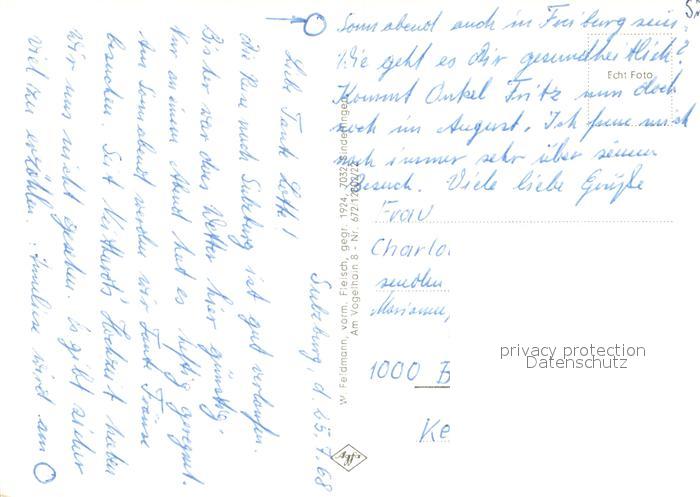 Sulzburg, d. 25.7.68
Liebe Tante Lotte!
die Reise nach Sulzburg ist gut verlaufen.
Bisher war das Wetter hier günstig.
Nur an einem Abend hat es heftig geregnet.
Am Sonnabend werden wir Tante
besuchen. Seit Hochzeit haben
wir uns nicht gesehen. Es gibt sicher
viel zu erzählen. Anneliese wird am
Sonnabend auch in Freiburg sein.
Wie geht es Dir gesundheitlich?
Kommt Onkel Fritz nun doch
noch im August. Ich freue mich
noch immer sehr über seinen
Besuch. Viele liebe Grüße
senden
Marianne,
Frau
Charlo
1000 B
Ke
Echt Foto
W. Feldmann, vorm. Fleisch, gegr. 1924, 7032 Sindelfingen
Am Vogelhain 8 - Nr. 672/12802/22
Agfa
privacy protection
Datenschutz